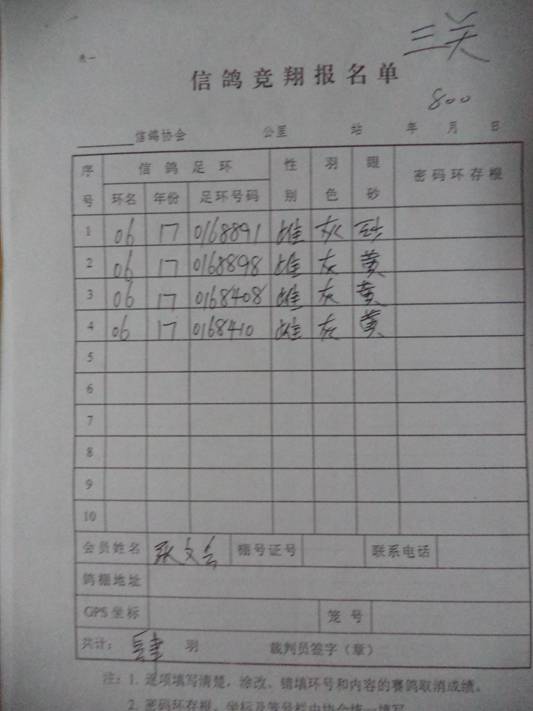 三关
表一
信鸽竞翔报名单
800
信鸽协会 公里 站 年 月 日
序号 信鸽足环 性别 羽色 眼砂 密码环存根
环名 年份 足环号码
1 06 17 0168891 雄 灰 砂
2 06 17 0168898 雄 灰 黄
3 06 17 0168408 雄 灰 黄
4 06 17 0168410 雄 灰 黄
5
6
7
8
9
10
会员姓名 张文会 棚号证号 联系电话
鸽棚地址
GPS坐标 笼号
共计： 肆 羽 裁判员签字（章）
注：1. 逐项填写清楚，涂改、错填环号和内容的赛鸽取消成绩。
2. 密码环存根、坐标及笼号栏由协会统一填写